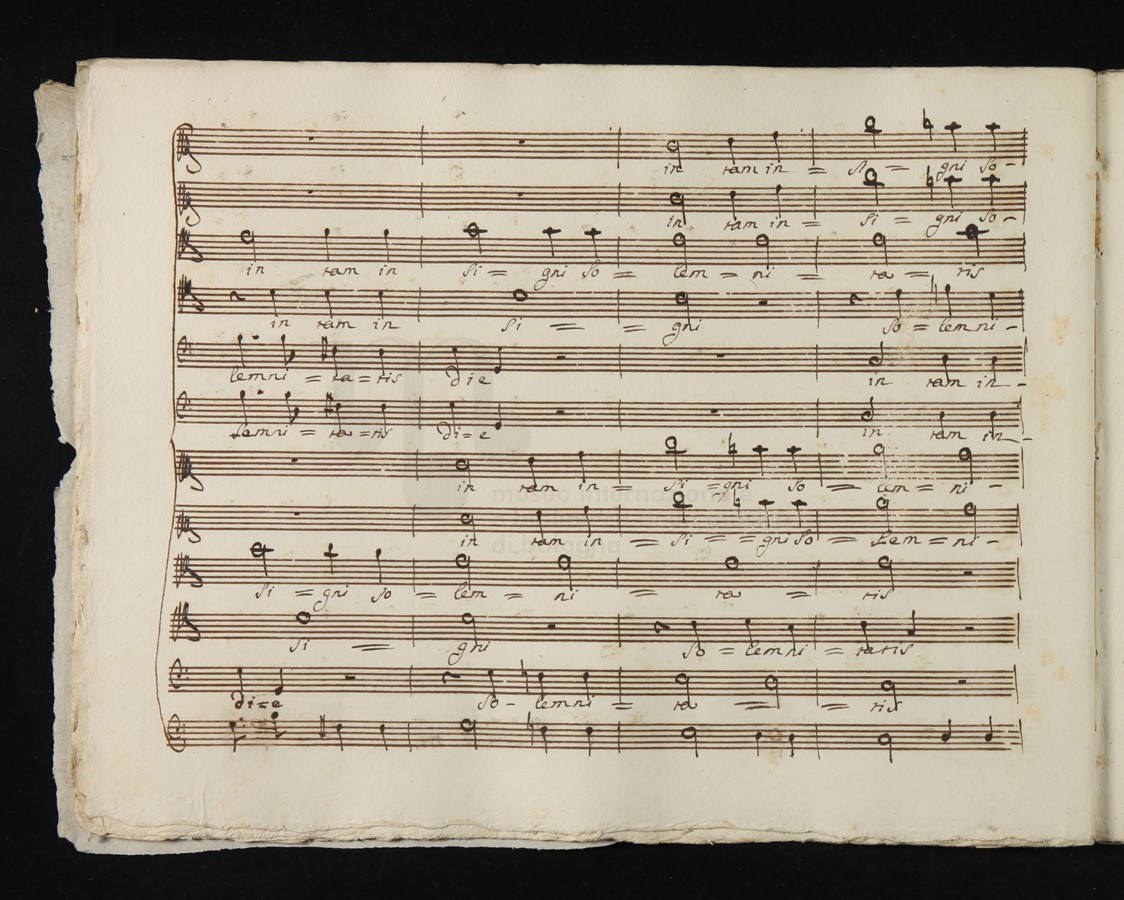 in tam in = si = gni so -
in tam in = si = gni so -
in tam in si = gni so = lem = ni = ta = tis
in tam in si = = gni so = lem ni -
lemni = ta = tis die in tam in -
lemni = ta = tis di = e in tam in -
in tam in = si = gni so = lem = ni -
in tam in = si = = gni so = lem = ni -
si = gni so = lem = ni = ta = tis
si = gni so = lemni = tatis
di = e so - lemni = ta = = tis
museo internazionale
di bologna